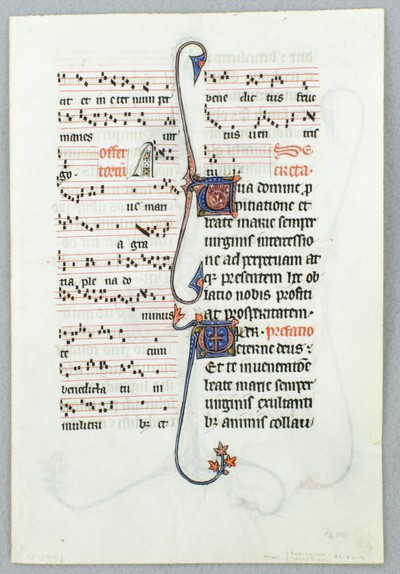 cit et in eter num per
manes uir
offer
go. toriū A
ue mari
a gra
tia ple na do
minus
te cum
benedicta tu in
mulieri bꝫ et
bene dic tus fruc
tus uen tris
tu Se
creta.
Tua domine ꝓ
pitiatione et
beate marie semper
uirginis intercessio
ne ad perpetuam at
qꝫ presentem hec ob
latio nobis profici
at prosperitatem.
PER. prefatio
eterne deus:
Et te in ueneratōe
beate marie semper
uirginis exultanti
bꝫ animis collau